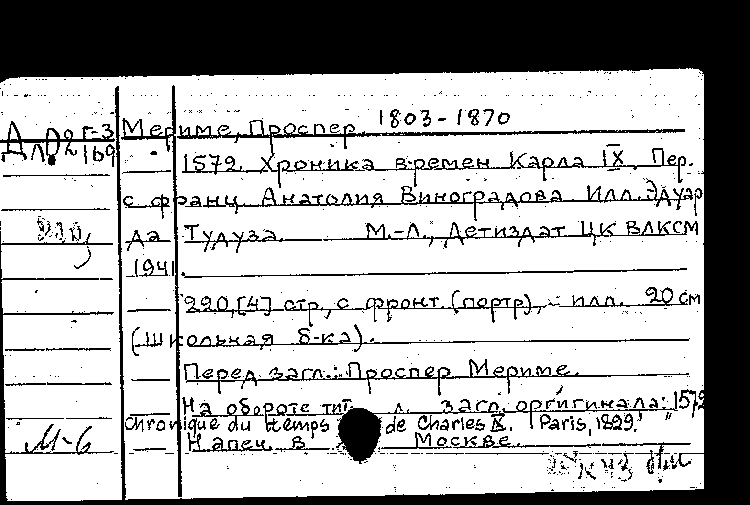 Мериме, Проспер 1803-1870
1572. Хроника времен Карла IX. Пер.
с франц. Анатолия Виноградова. Илл. Эдуар
да Тудуза. М.-Л., Детиздат ЦК ВЛКСМ
1941.
220,[4] стр, с фронт. (портр), илл. 20 см
(Школьная б-ка).
Перед загл.: Проспер Мериме.
На обороте тит. л. загл. оргигинала: 1572
Chronique du temps de Charles IX. Paris, 1829.
Напеч. в Москве.
М-6